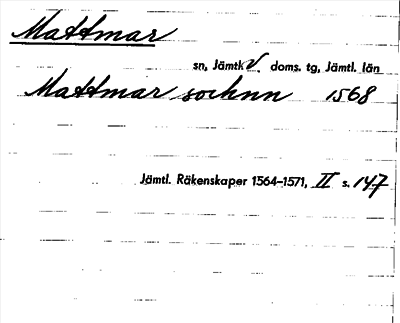 Mattmar
sn, Jämtk V. doms. tg, Jämtl. län
Mattmar sochnn 1568
Jämtl. Räkenskaper 1564–1571, II s. 147